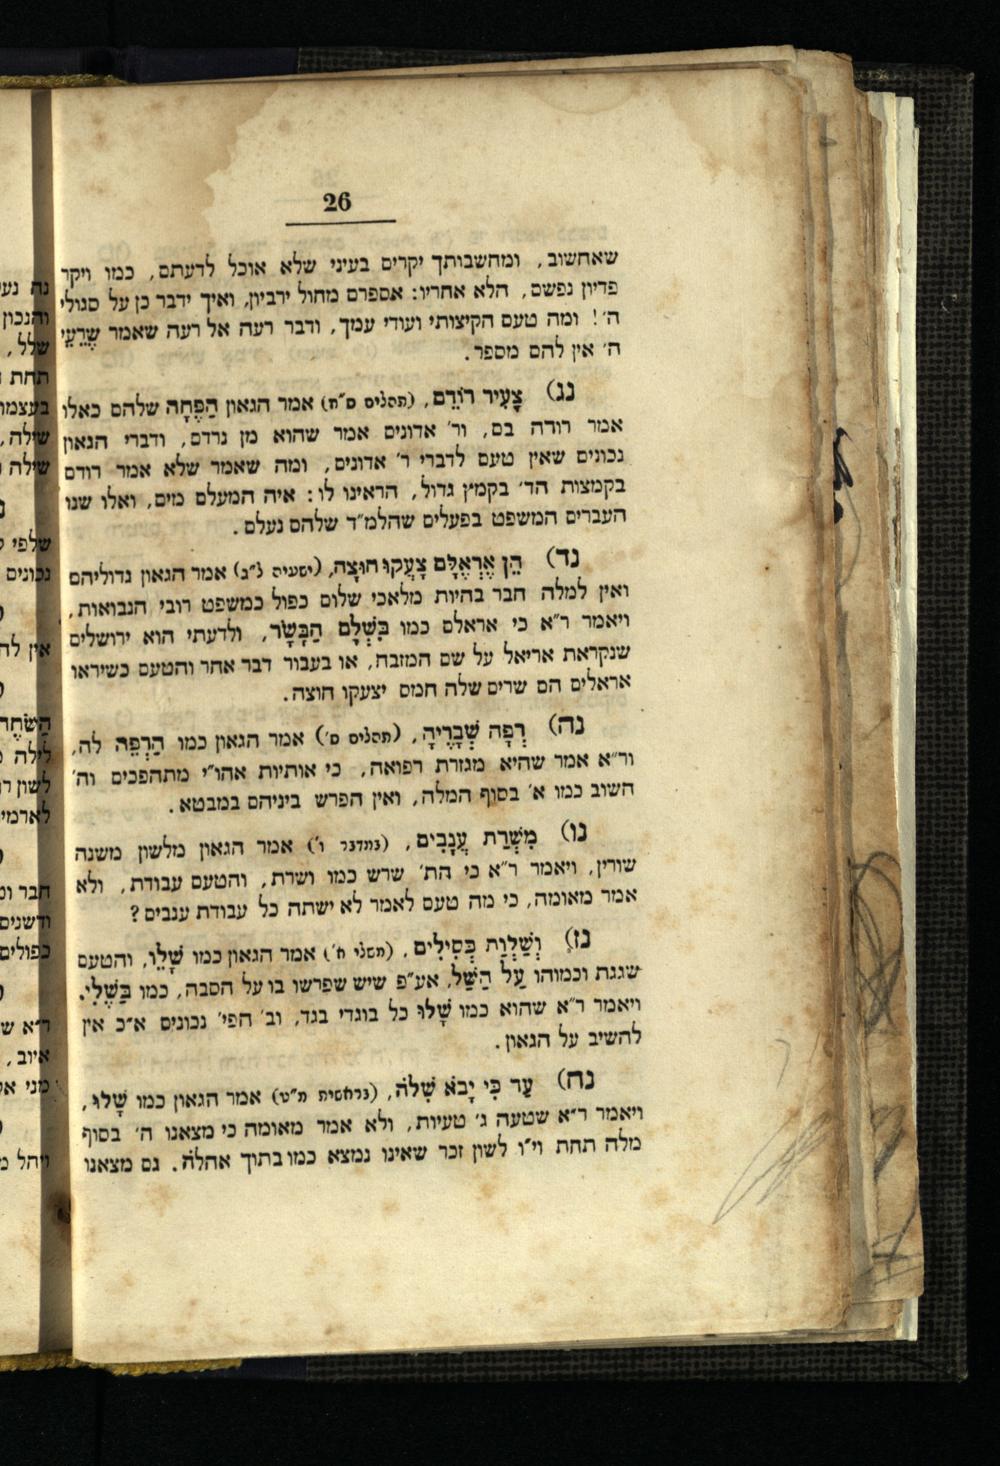 26
שאחשוב, ומחשבותך יקרים בעיני שלא אוכל לדעתם, כמו ויקר
פדיון נפשם, הלא אחריו: אספרם מחול ירביון, ואיך ידבר כן על סגולי
ה׳! ומה טעם הקיצותי ועודי עמך, ודבר רעה אל רעה שאמר שֶׁרֵעַי
ה׳ אין להם מספר.
נג) צָעִיר רוֹדֵם, (תהלים ס״ח) אמר הגאון הַפֶּחָה שלהם כאלו
אמר רודה בם, ור׳ אדונים אמר שהוא מן נרדם, ודברי הגאון
נכונים שאין טעם לדברי ר׳ אדונים, ומה שאמר שלא אמר רודם
בקמצות הד׳ בקמץ גדול, הראינו לו: איה המעלם מים, ואלו שנו
העברים המשפט בפעלים שהלמ״ד שלהם נעלם.
נד) הֵן אֶרְאֶלָּם צָעֲקוּ חוּצָה, (ישעיה ל״ג) אמר הגאון גדוליהם
ואין למלה חבר בהיות מלאכי שלום כפול כמשפט רובי הנבואות,
ויאמר ר״א כי אראלם כמו בִּשְׁלָם הַבָּשָׂר, ולדעתי הוא ירושלים
שנקראת אריאל על שם המזבח, או בעבור דבר אחר והטעם כשיראו
אראלים הם שרים שלה חמס יצעקו חוצה.
נה) רְפָה שְׁבָרֶיהָ, (תהלים ס׳) אמר הגאון כמו הַרְפֵּה לה,
ור״א אמר שהיא מגזרת רפואה, כי אותיות אהו״י מתהפכים וה׳
חשוב כמו א׳ בסוף המלה, ואין הפרש ביניהם במבטא.
נו) מִשְׁרַת עֲנָבִים, (במדבר ו׳) אמר הגאון מלשון משנה
שורין, ויאמר ר״א כי הת׳ שרש כמו ושרת, והטעם עבודת, ולא
אמר מאומה, כי מה טעם לאמר לא ישתה כל עבודת ענבים?
נז) וְשַׁלְוַת כְּסִילִים, (משלי א׳) אמר הגאון כמו שָׁלֵו, והטעם
שגגת וכמוהו עַל הַשַּׁל, אע״פ שיש שפרשו בו על הסבה, כמו בְּשֶׁלִּי.
ויאמר ר״א שהוא כמו שָׁלוּ כל בוגדי בגד, וב׳ הפי׳ נכונים א״כ אין
להשיב על הגאון.
נח) עַד כִּי יָבֹא שִׁלֹה, (בראשית מ״ט) אמר הגאון כמו שָׁלוּ,
ויאמר ר״א שטעה ג׳ טעיות, ולא אמר מאומה כי מצאנו ה׳ בסוף
מלה תחת וי״ו לשון זכר שאינו נמצא כמו בתוך אהלה. גם מצאנו